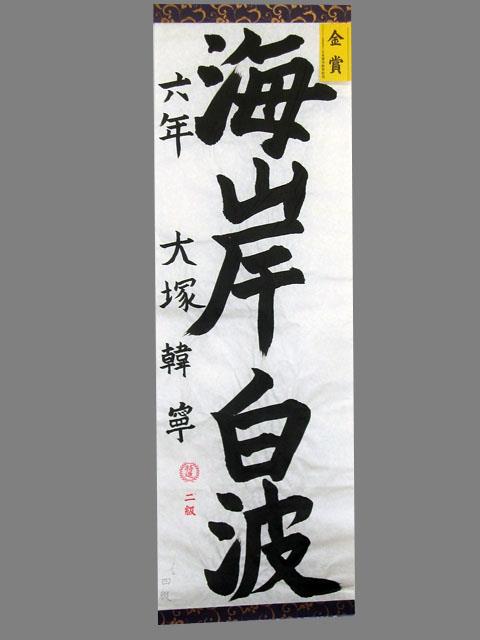 金賞
海岸白波
六年 大塚韓寧
二級